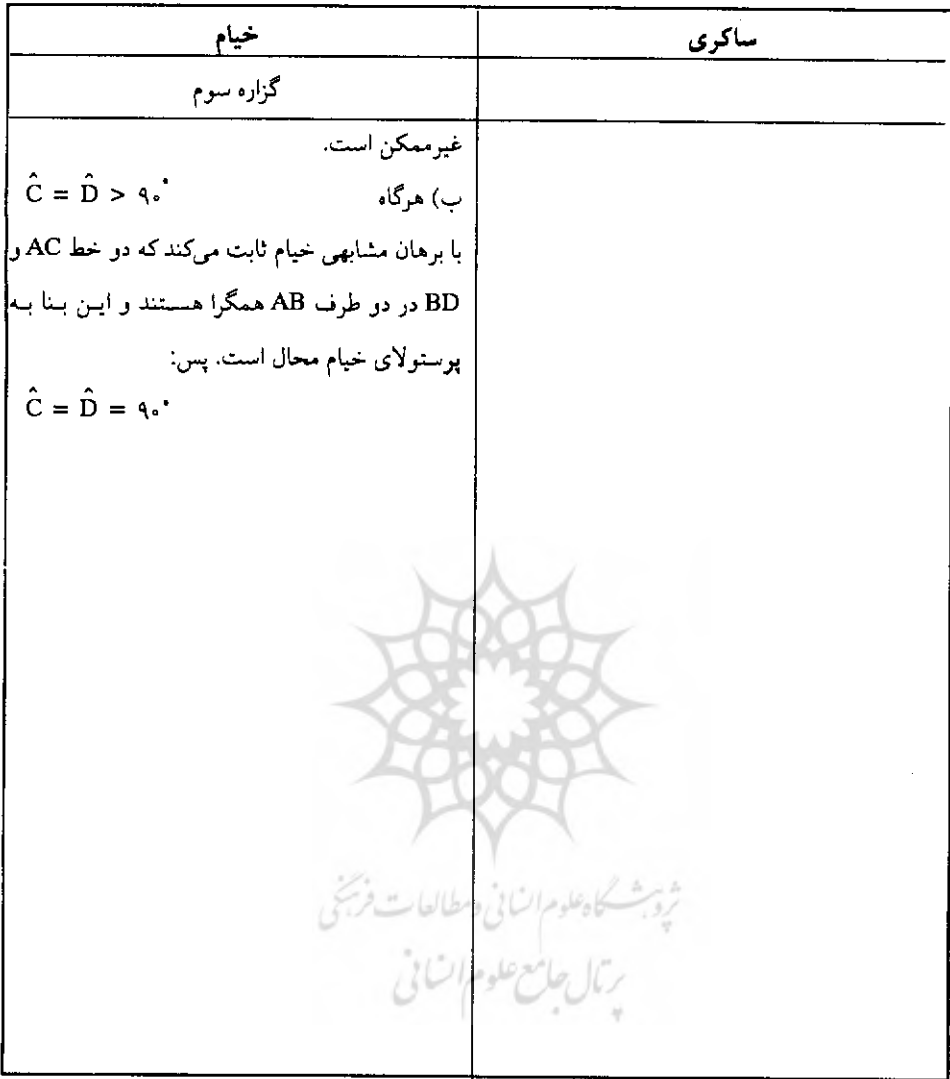 ساکری
خیام
گزاره سوم
غیرممکن است.
ب) هرگاه Ĉ = D̂ > ۹۰°
با برهان مشابهی خیام ثابت می‌کند که دو خط AC و
BD در دو طرف AB همگرا هستند و این بنا به
پوستولای خیام محال است. پس:
Ĉ = D̂ = ۹۰°
پژوهشگاه علوم انسانی و مطالعات فرهنگی
پرتال جامع علوم انسانی